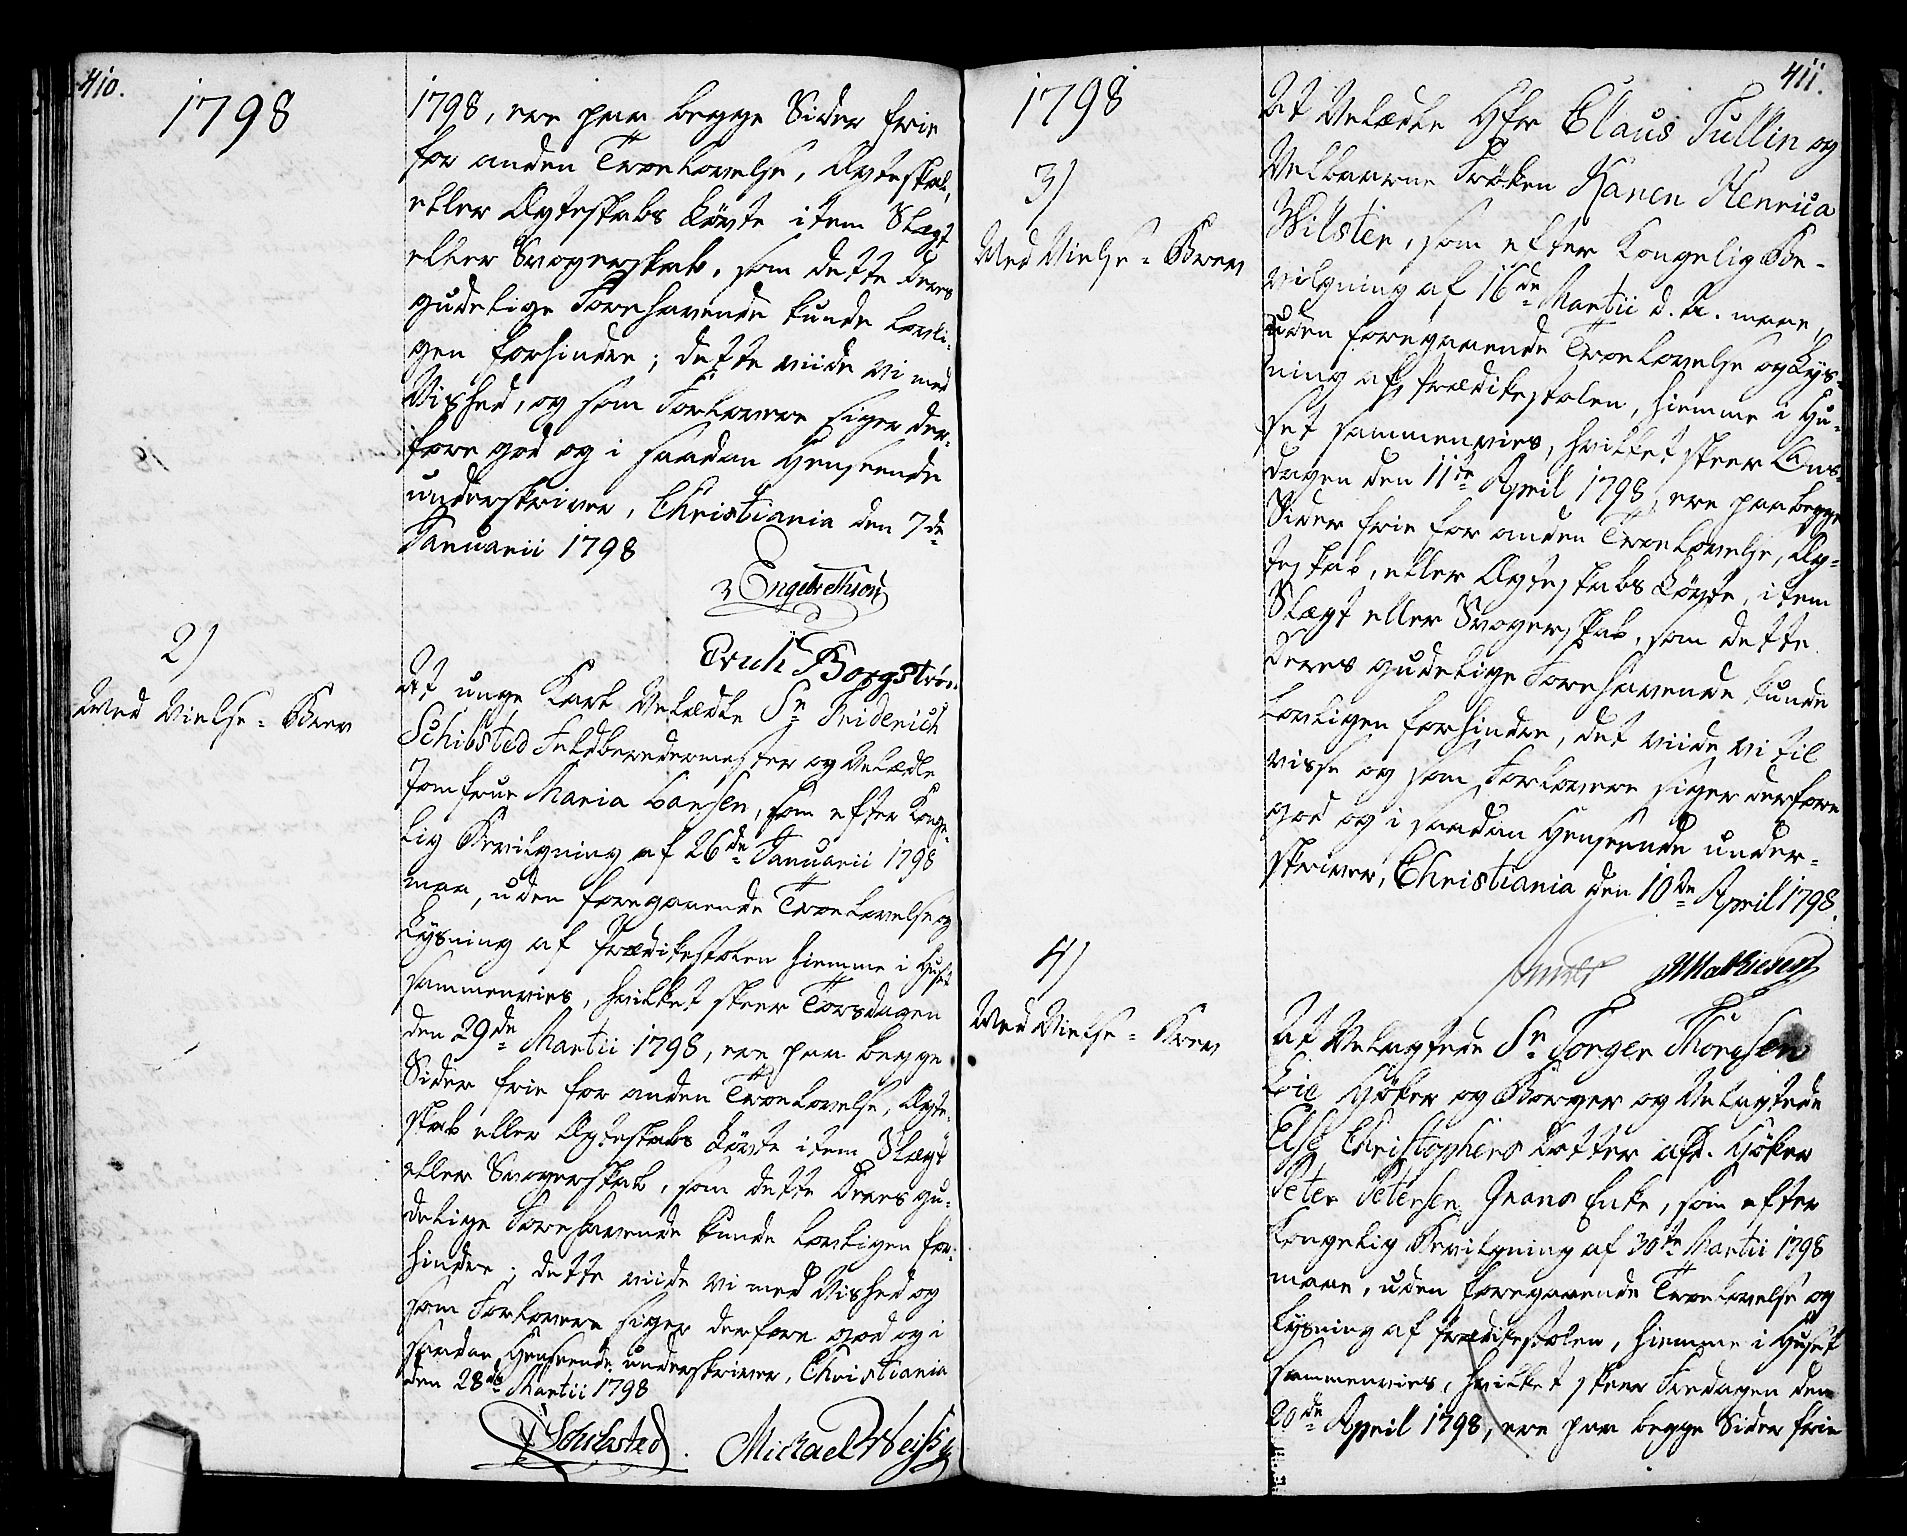 410.
1798
1798, ere paa begge Sider frie
for anden Troelovelse, Ægteskab,
eller Ægteskabs Løvte item Slægt
eller Svogerskab, som dette Deres
gudelige Forehavende kunde lovli-
gen forhindre; dette viide vi med
Vished, og som Forlovere siger der-
fore god og i saadan Henseende
underskriver, Christiania den 7de
Januarii 1798
Engebrethson
Erich Borgstrøm
2)
Med Vielse-Brev
At unge Karl Velædle Sr Friderich
Schibsted Feldberedermester og Velædle
Jomfrue Maria Hansen, som efter Konge-
lig Bevilgning af 26de Januarii 1798
maa, uden foregaaende Troelovelse og
Lysning af Prædikestolen hiemme i Huset
sammenvies, hvilket skeer Torsdagen
den 29de Martii 1798, ere paa begge
Sider frie for anden Troelovelse, Ægte-
skab eller Ægteskabs Løvte item Slægt
eller Svogerskab, som dette Deres gu-
delige Forehavende kunde lovligen for-
hindre; dette viide vi med Vished og
som Forlovere siger derfore god og i
saadan Henseende underskriver, Christiania
den 28de Martii 1798
Schibsted. Michael Weiss
411.
1798
3)
Med Vielse-Brev
At Velædle Hr Claus Tullin og
Velbaarne Frøken Karen Henrica
Wilster, som efter Kongelig Be-
vilgning af 16de Martii d. A. maae,
uden foregaaende Troelovelse og Lys-
ning af Prædikestolen, hiemme i Hu-
set sammenvies, hvilket skeer Ons-
dagen den 11te April 1798, ere paa begge
Sider frie for anden Troelovelse, Æg-
teskab, eller Ægteskabs Løvte, item
Slægt eller Svogerskab, som dette
Deres gudelige Forehavende kunde
lovligen forhindre, det viide vi til
visse og som Forlovere siger derfore
god og i saadan Henseende under-
skriver, Christiania den 10de April 1798.
Mathiesen
4)
Med Vielse-Brev
At Velagtede Sr Torger Thoresen
Lie Høker og Borger og Velagtede
Else Christophers Datter afd. Høker
Peter Petersen Grans Enke, som efter
Kongelig Bevilgning af 30te Martii 1798
maae, uden foregaaende Troelovelse og
Lysning af Prædikestolen, hiemme i Huset
sammenvies, hvilket skeer Fredagen den
20de April 1798, ere paa begge Sider frie